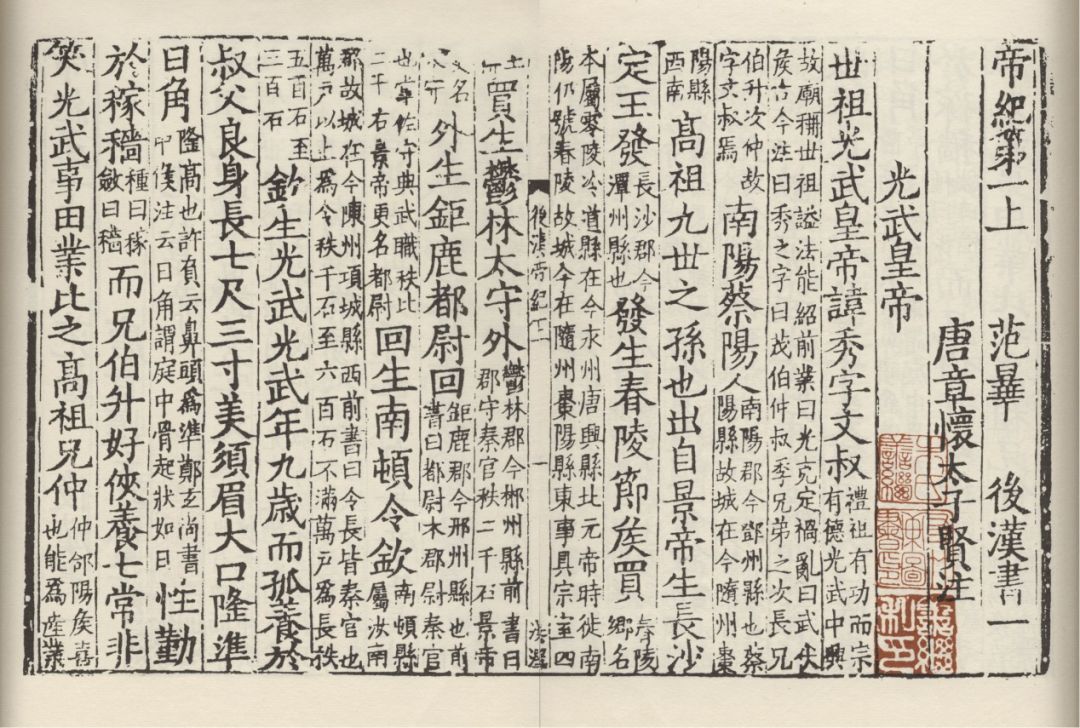 帝紀第一上 范曄 後漢書一
唐章懷太子賢注
光武皇帝
世祖光武皇帝諱秀字文叔 禮祖有功而宗有德光武中興
故廟稱世祖謚法能紹前業曰光克定禍亂曰武伏
侯古今注曰秀之字曰茂伯仲叔季兄弟之次長兄
伯升次仲故字文叔焉 南陽蔡陽人 南陽郡今鄧州縣也蔡陽縣故城在今隨州棗
陽縣西南 高祖九世之孫也出自景帝生長沙
定王發 長沙郡今潭州縣也 發生舂陵節侯買 舂陵鄉名
本屬零陵冷道縣在今永州唐興縣北元帝時徙南
陽仍號舂陵故城今在隨州棗陽縣東事具宗室四
後漢帝紀一
一
王 買生鬱林太守外 鬱林郡今郴州縣前書曰郡守秦官秩二千石景帝
名 外生鉅鹿都尉回 鉅鹿郡今邢州縣也前書曰都尉本郡尉秦官
也掌佐守典武職秩比二千石景帝更名都尉 回生南頓令欽 南頓縣屬汝南
郡故城在今陳州項城縣西前書曰令長皆秦官也
萬戶以上爲令秩千石至六百石不滿萬戶爲長秩
五百石至三百石 欽生光武光武年九歲而孤養於
叔父良身長七尺三寸美須眉大口隆準
日角 隆高也許負云鼻頭爲準鄭玄尚書中候注云日角謂庭中骨起狀如日 性勤
於稼穡 種曰稼斂曰穡 而兄伯升好俠養士常非
笑光武事田業比之高祖兄仲 仲郃陽侯喜也能爲產業